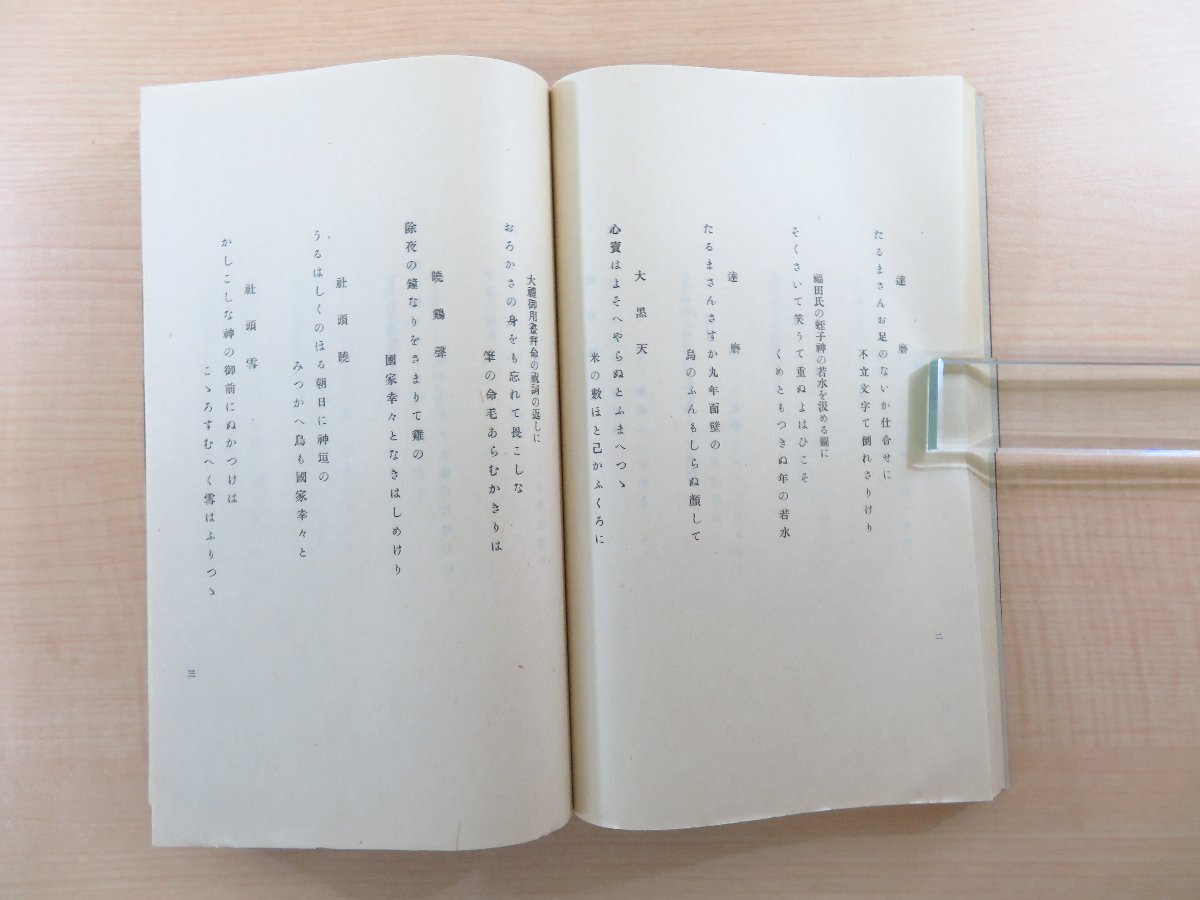 達磨
たるまさんお足のないか仕合せに
不立文字て倒れさりけり
福田氏の蛭子神の若水を汲める圖に
そくさいて笑うて重ぬよはひこそ
くめともつきぬ年の若水
達磨
たるまさんさすか九年面壁の
鳥のふんもしらぬ顔して
大黒天
心寶はよそへやらぬとふまへつゝ
米の數ほと己かふくろに
二
大禮御用畫拜命の祝詞の返しに
おろかさの身をも忘れて畏こしな
筆の命毛あらむかきりは
曉鷄聲
除夜の鐘なりをさまりて雞の
國家幸々となきはしめけり
社頭曉
うるはしくのほる朝日に神垣の
みつかへ鳥も國家幸々と
社頭雪
かしこしな神の御前にぬかつけは
こゝろすむへく雪はふりつゝ
三